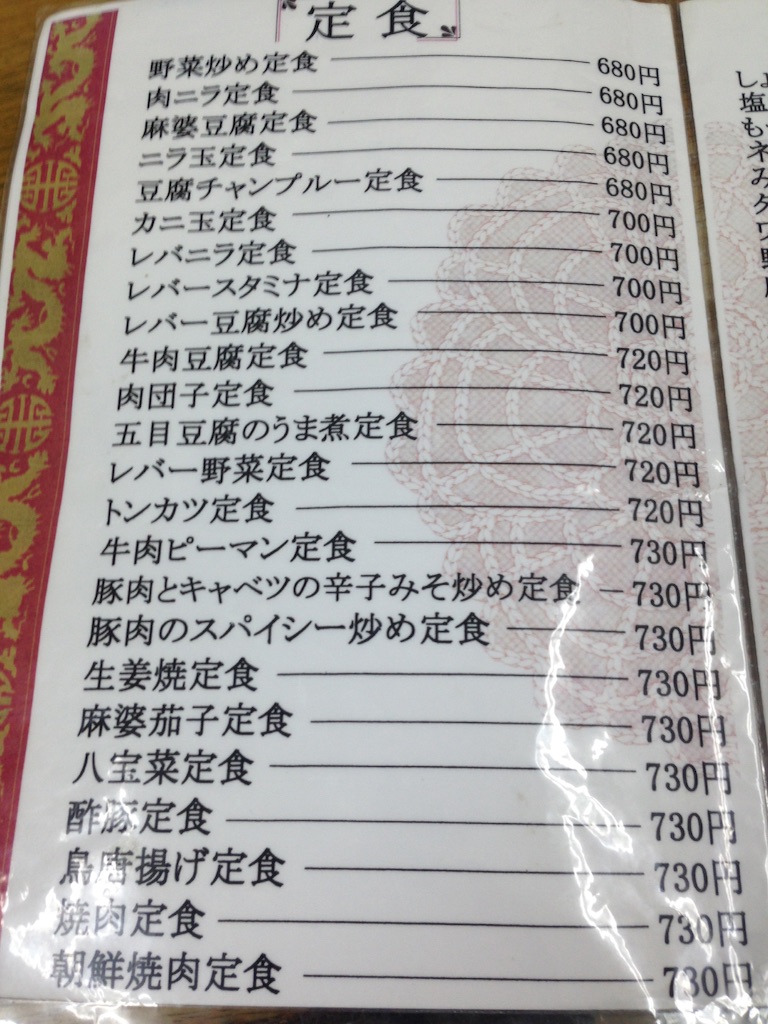 定食
野菜炒め定食 680円
肉ニラ定食 680円
麻婆豆腐定食 680円
ニラ玉定食 680円
豆腐チャンプルー定食 680円
カニ玉定食 700円
レバニラ定食 700円
レバースタミナ定食 700円
レバー豆腐炒め定食 700円
牛肉豆腐定食 720円
肉団子定食 720円
五目豆腐のうま煮定食 720円
レバー野菜定食 720円
トンカツ定食 720円
牛肉ピーマン定食 730円
豚肉とキャベツの辛子みそ炒め定食 730円
豚肉のスパイシー炒め定食 730円
生姜焼定食 730円
麻婆茄子定食 730円
八宝菜定食 730円
酢豚定食 730円
鳥唐揚げ定食 730円
焼肉定食 730円
朝鮮焼肉定食 730円